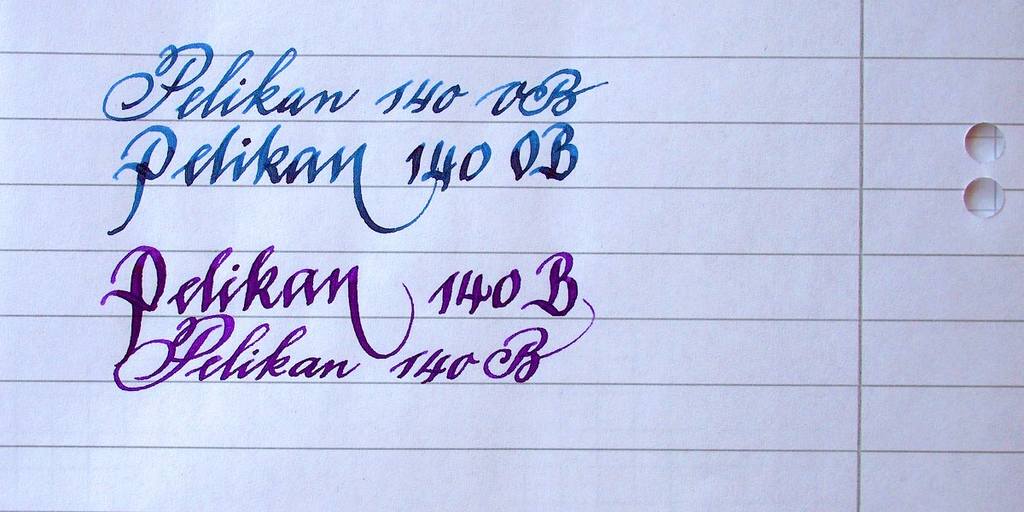 Pelikan 140 OB
Pelikan 140 OB
Pelikan 140 B
Pelikan 140 B